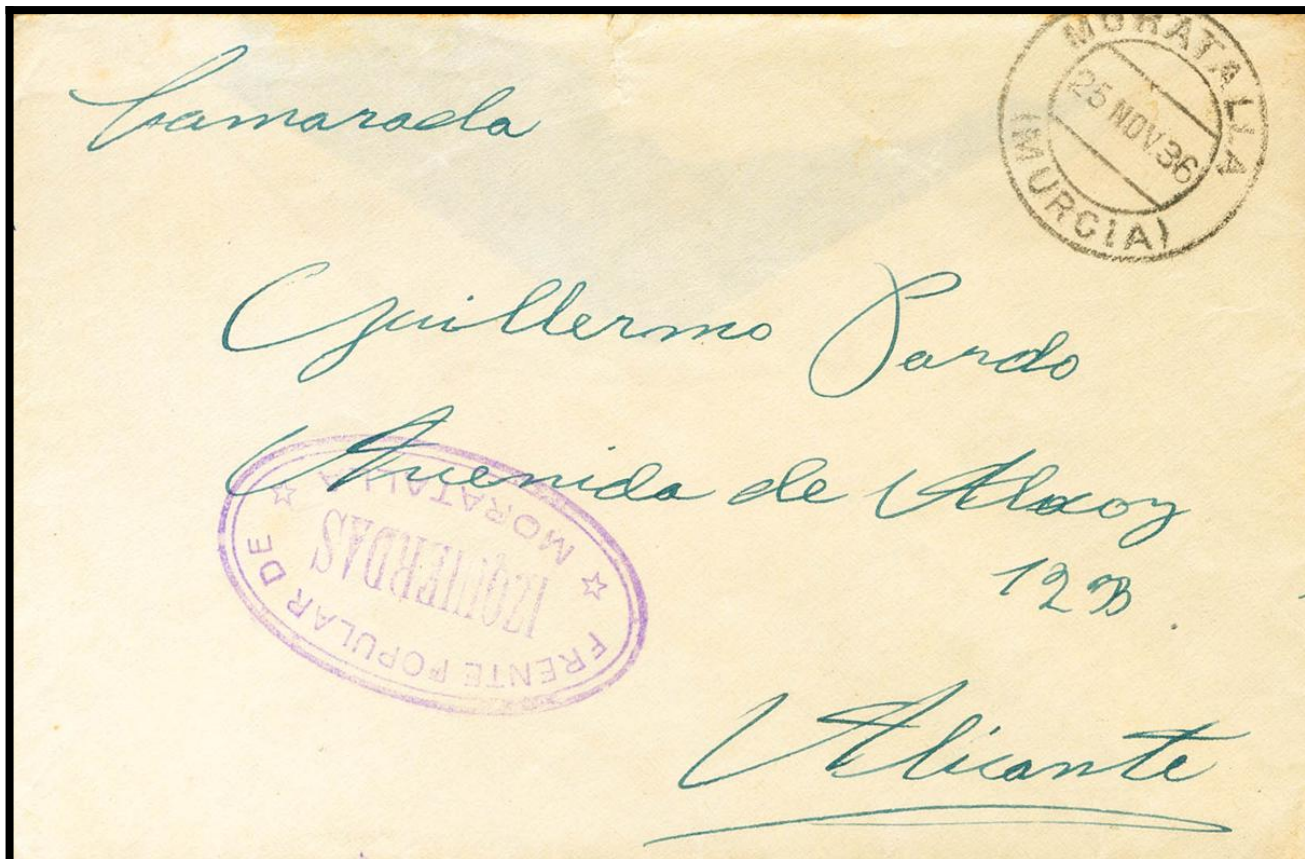 Camarada
MORATALLA
25 NOV.36
(MURCIA)
Guillermo Pardo
Avenida de Alcoy
12 B.
FRENTE POPULAR DE
IZQUIERDAS
MORATALLA
Alicante